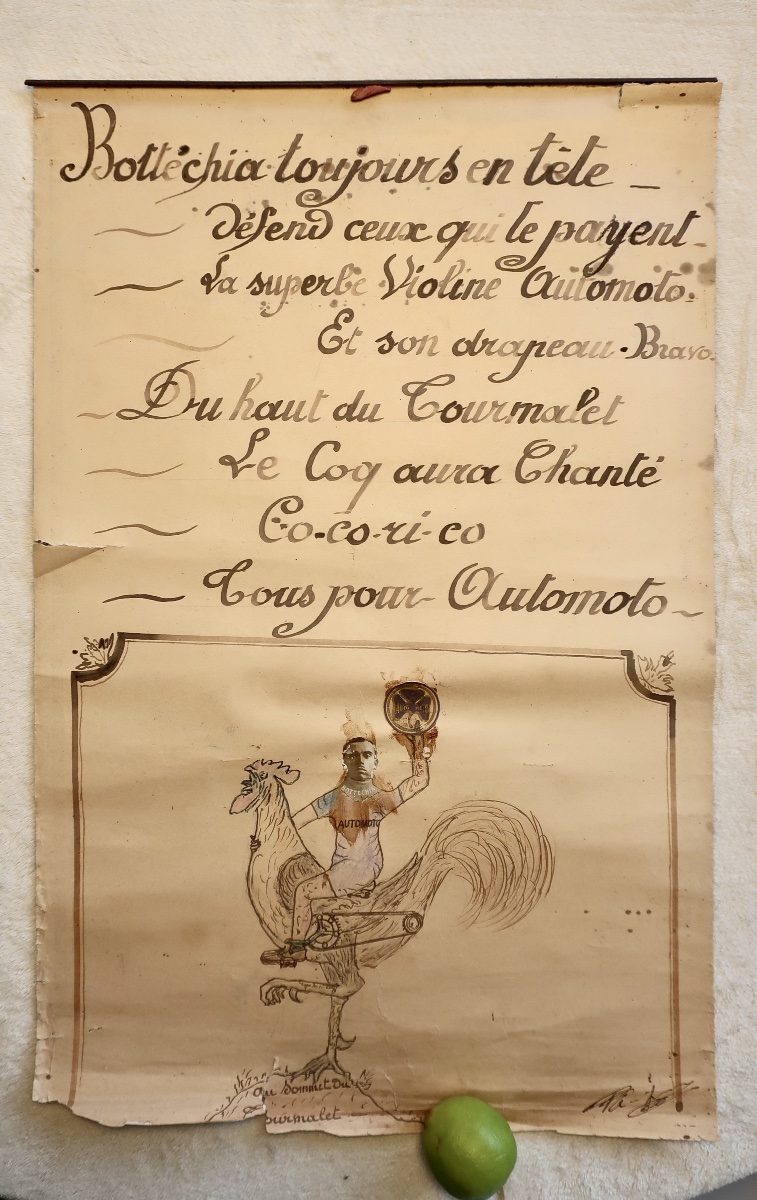 Bottéchia toujours en tête _
défend ceux qui le payent -
La superbe Violine Automoto.
Et son drapeau. Bravo.
Du haut du Tourmalet
Le Coq aura Chanté
Co-co-ri-co
Tous pour Automoto
BOTTECHIA
AUTOMOTO
Au Sommet du
Tourmalet